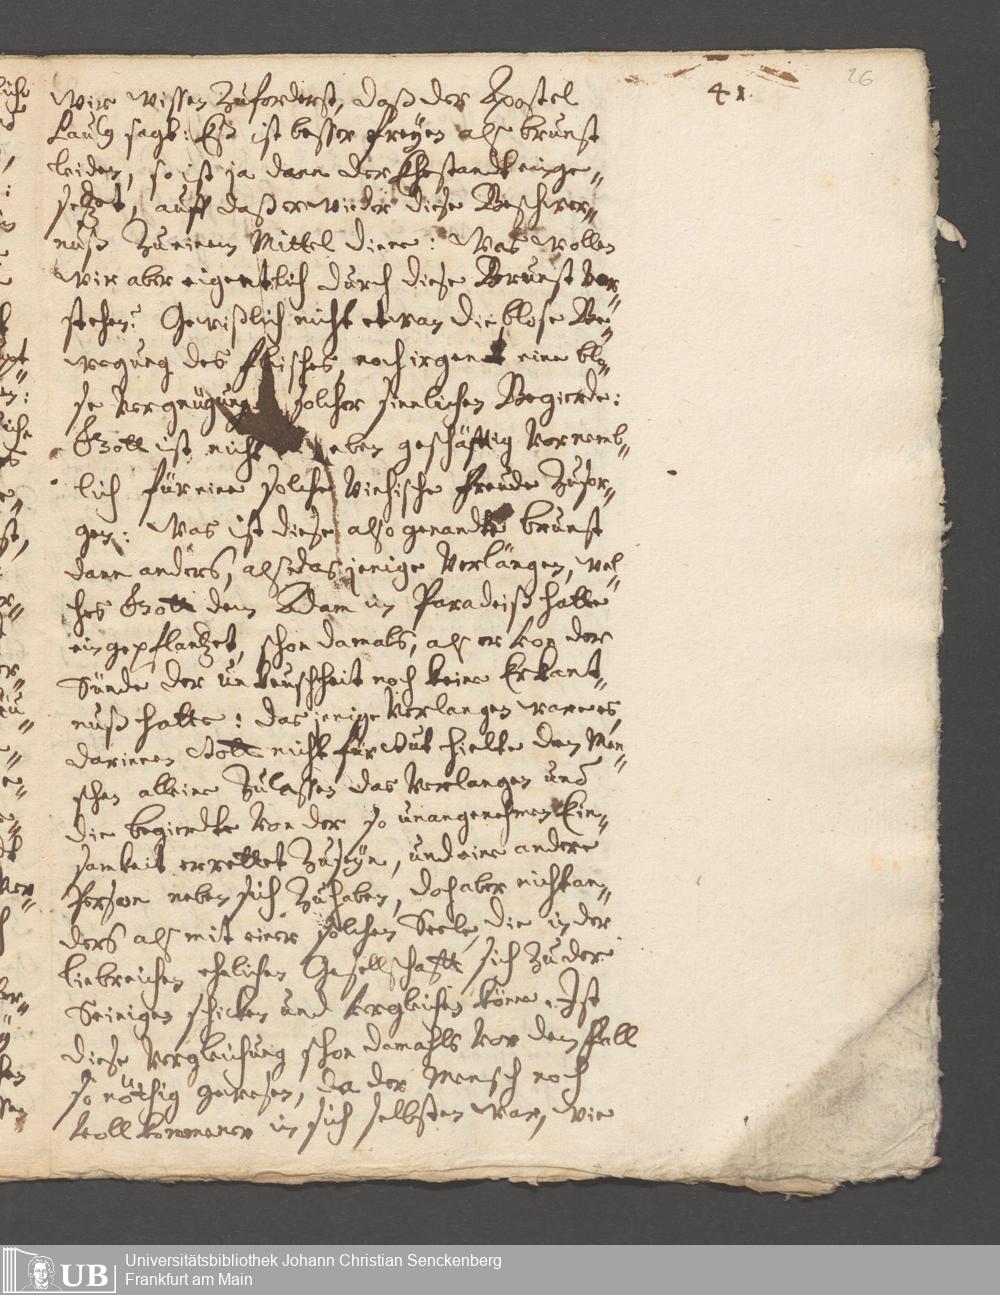 41.
26
Wir wissen Zuforderst, daß der Apostel
Paulg sagt: Eß ist besser freÿen als brunst
leiden, so ist ja dann der Ehestandt einge„
setzet, auff daß er wieder diese Beschwer„
nuß Zu einem Mittel diene: Was wollen
wir aber eigentlich durch diese Brunst ver„
stehen? Gewißlich nicht etwan die blose Be„
wegung des fleisches, noch irgendt eine blo„
se Vergnügung solcher sinnlichen Begierde:
Gott ist nicht eben geschäfftig vornemb„
lich für eine solche Viehische freude Zu sor„
gen: Was ist diese also genandte brunst
dann anders, als das jenige Verlangen, wel„
ches Gott dem Adam im Paradeiß hatte
eingepflantzet, schon damals, als er von der
Sünde der unkeuschheit noch keine Erkant„
nuß hatte: das jenige Verlangen ware es,
darinnen Gott nicht für Gut hielte den Men„
schen alleine Zulassen das Verlangen und
die begierdte von der so unangenehmen Ein„
samkeit errettet Zu seÿn, und eine andere
Person neben sich Zu haben, doch aber nicht an„
ders als mit einer solchen Seele, die in der
liebreichen ehelichen Gesellschafft sich Zu der
Seinigen schicken und vergleichen könne. Ist
diese Vergleichung schon damahls vor dem fall
so nöthig gewesen, da der Mensch noch
vollkommener in sich selbsten war, wie
UB
Universitätsbibliothek Johann Christian Senckenberg
Frankfurt am Main